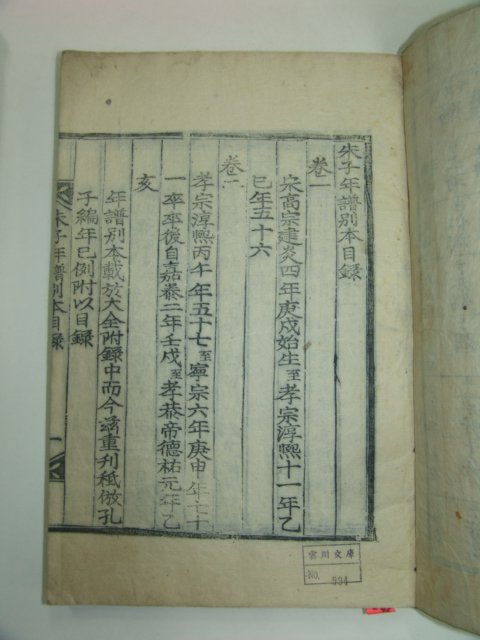 朱子年譜別本目録
卷一
宋高宗建炎四年庚戌始生至孝宗淳熙十一年乙
巳年五十六
卷二
孝宗淳熙丙午年五十七至寧宗六年庚申年七十
一卒卒後自嘉泰二年壬戌至孝恭帝德祐元年乙
亥
年譜別本載放大全附録中而今番重刊秪倣孔
子編年已例附以目録
朱子年譜別本目録
一
宮川文庫
NO. 934